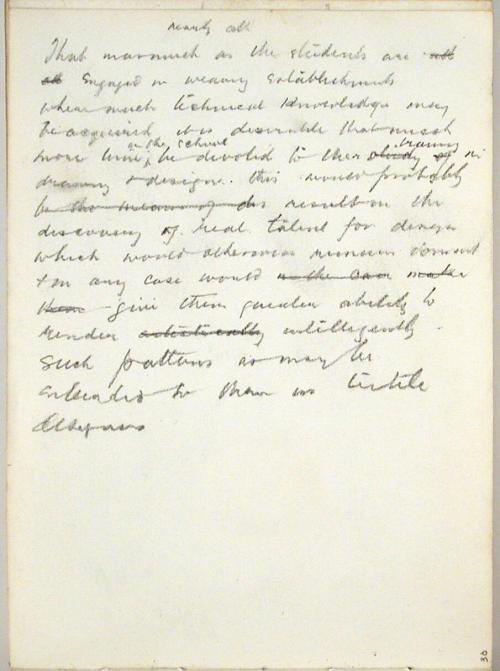 nearly all
That inasmuch as the students are all
all engaged in weaving establishments
where much technical knowledge may
be acquired it is desirable that much
in the school training
more time be devoted to their study of in
drawing & design. this would probably
be the meaning of dis result in the
discovery of real talent for design
which would otherwise remain dormant
& in any case would in the case make
them give them greater ability to
render artistically intelligently
such patterns as may be
to them in textile
designs
30